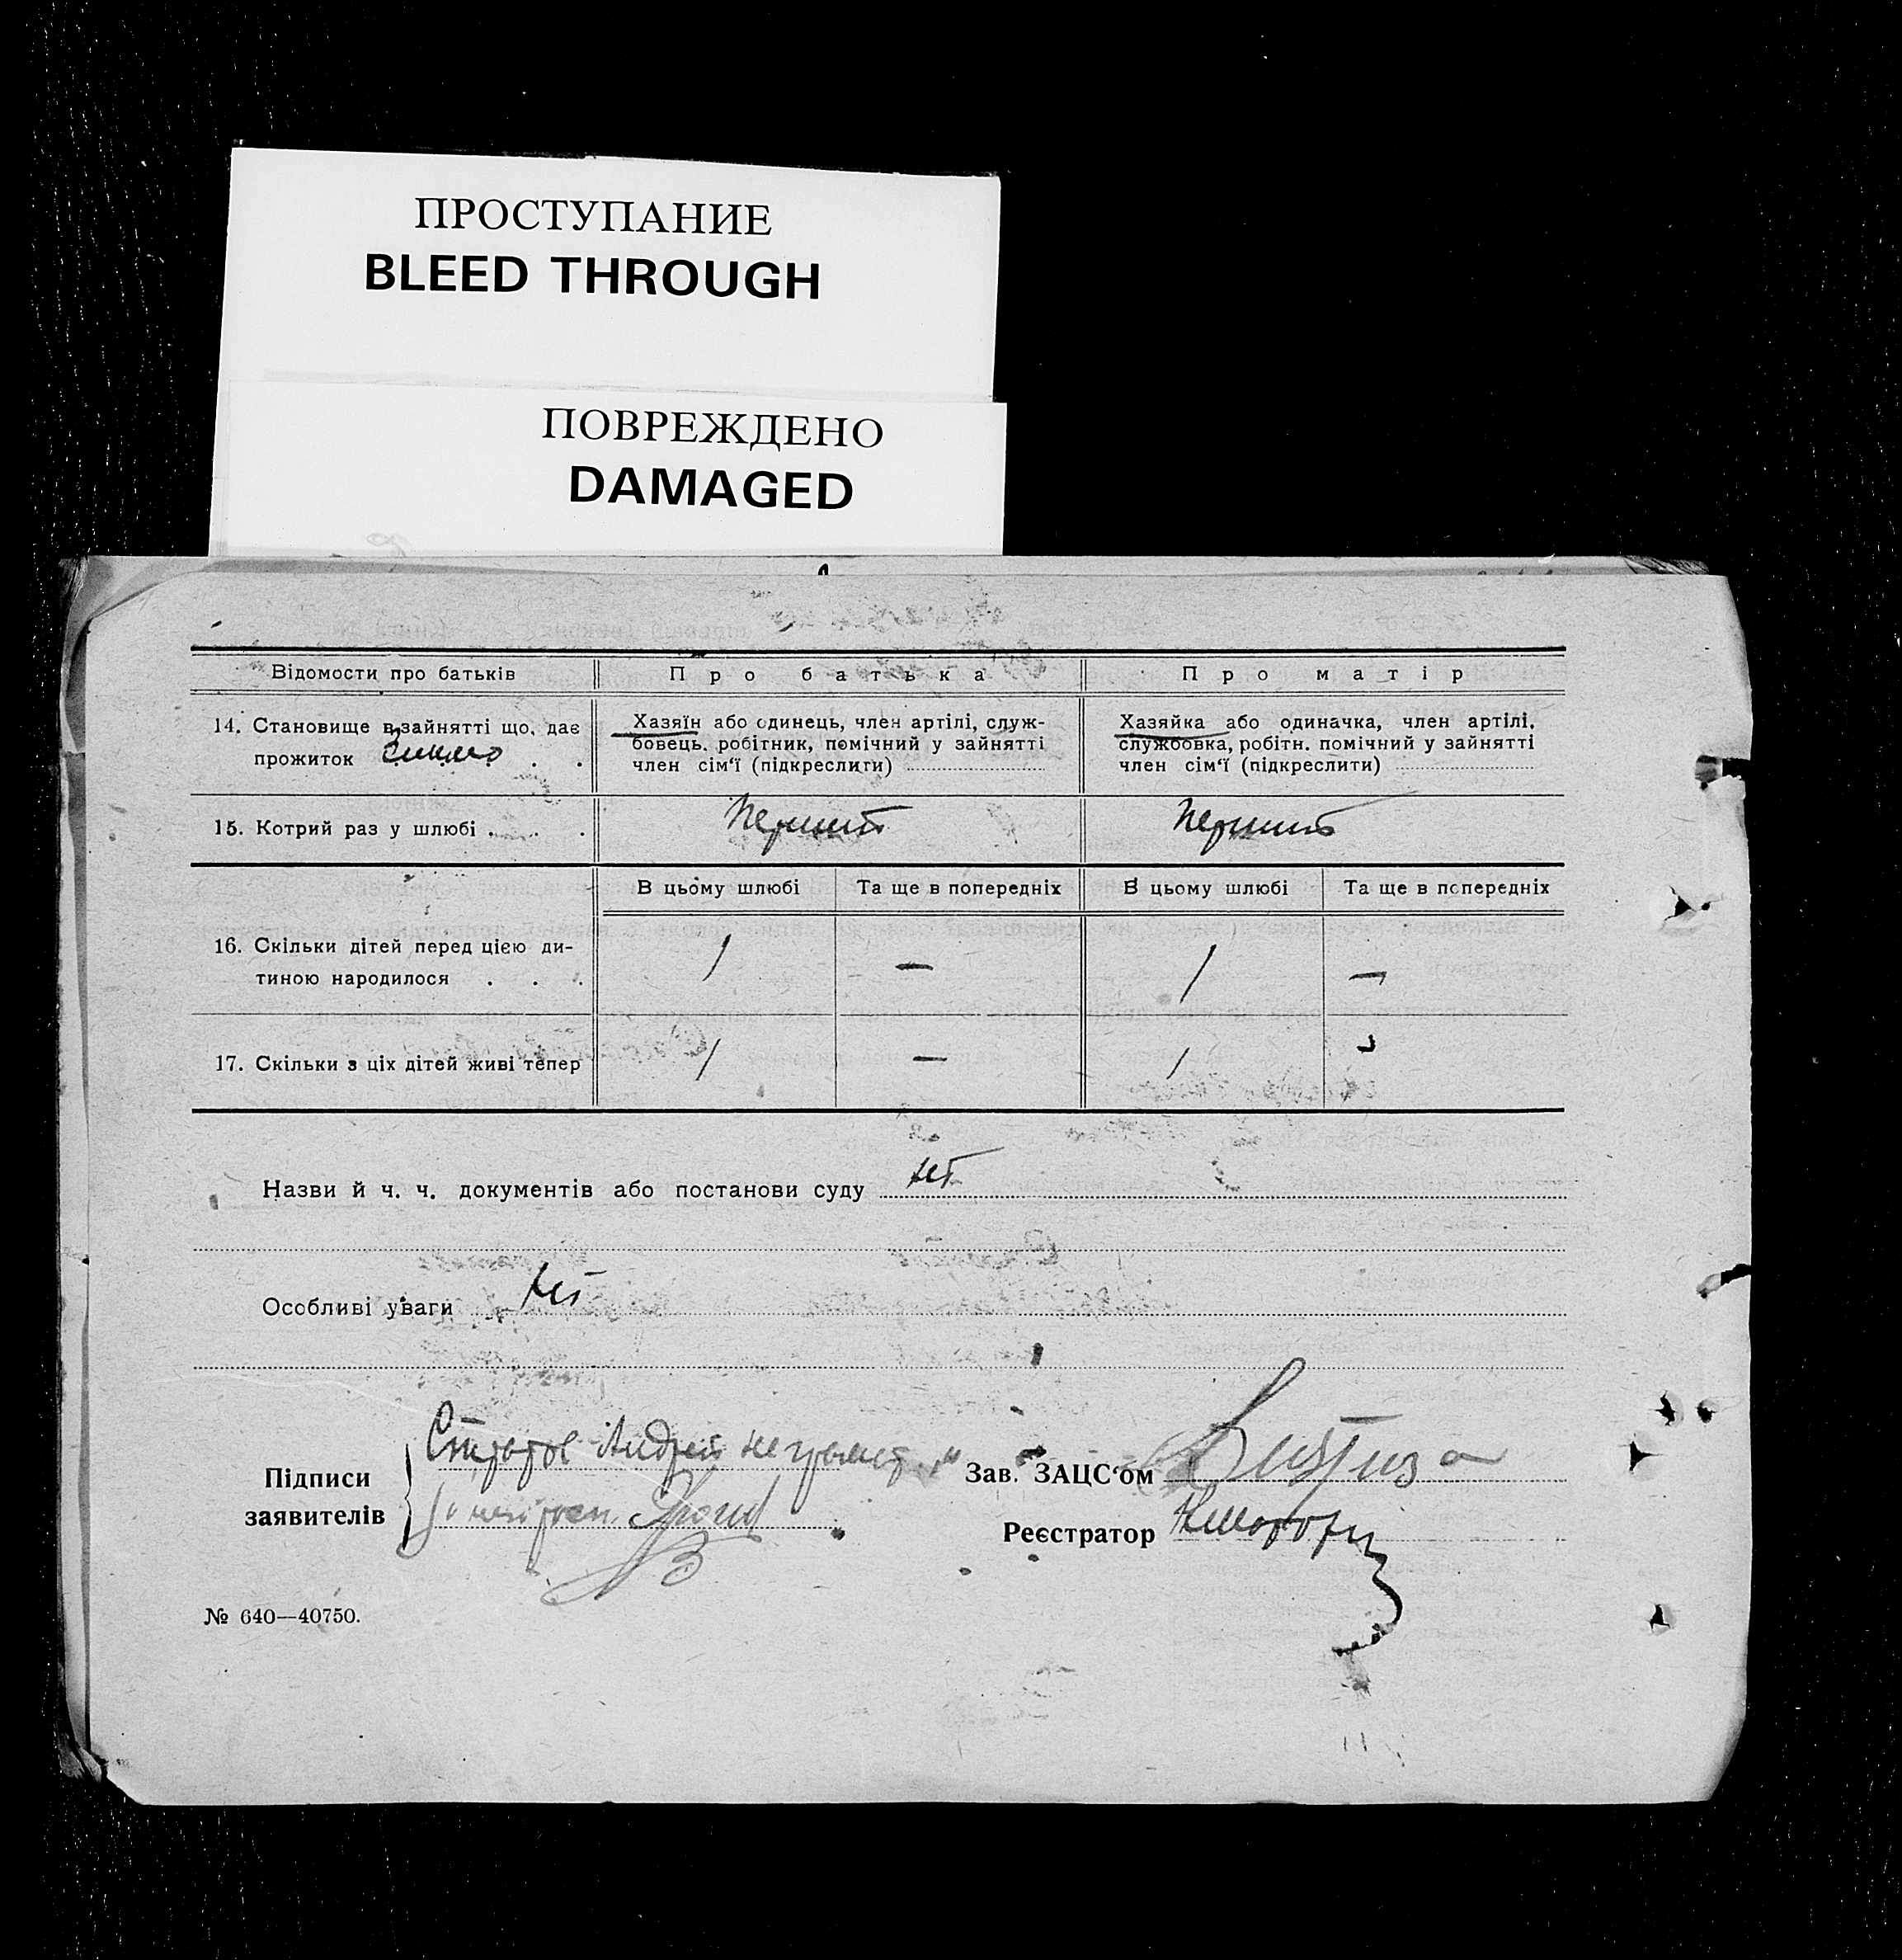 ПРОСТУПАНИЕ
BLEED THROUGH
ПОВРЕЖДЕНО
DAMAGED
Відомости про батьків Про батька Про матір
14. Становище в зайнятті що, дає
прожиток . .
Хазяїн або одинець, член артілі, служ-
бовець, робітник, помічний у зайнятті
член сім'ї (підкреслити)
Хазяйка або одиначка, член артілі,
службовка, робітн. помічний у зайнятті
член сім'ї (підкреслити)
15. Котрий раз у шлюбі . . . Первий Первий
В цьому шлюбі Та ще в попередніх В цьому шлюбі Та ще в попередніх
16. Скільки дітей перед цією ди-
тиною народилося . . . 1 — 1 —
17. Скільки з ціх дітей живі тепер 1 — 1
Назви й ч. ч. документів або постанови суду нет
Особливі уваги нет
Андрей неграмот
Підписи
заявителів
Зав. ЗАЦС'ом
Реєстратор
№ 640—40750.